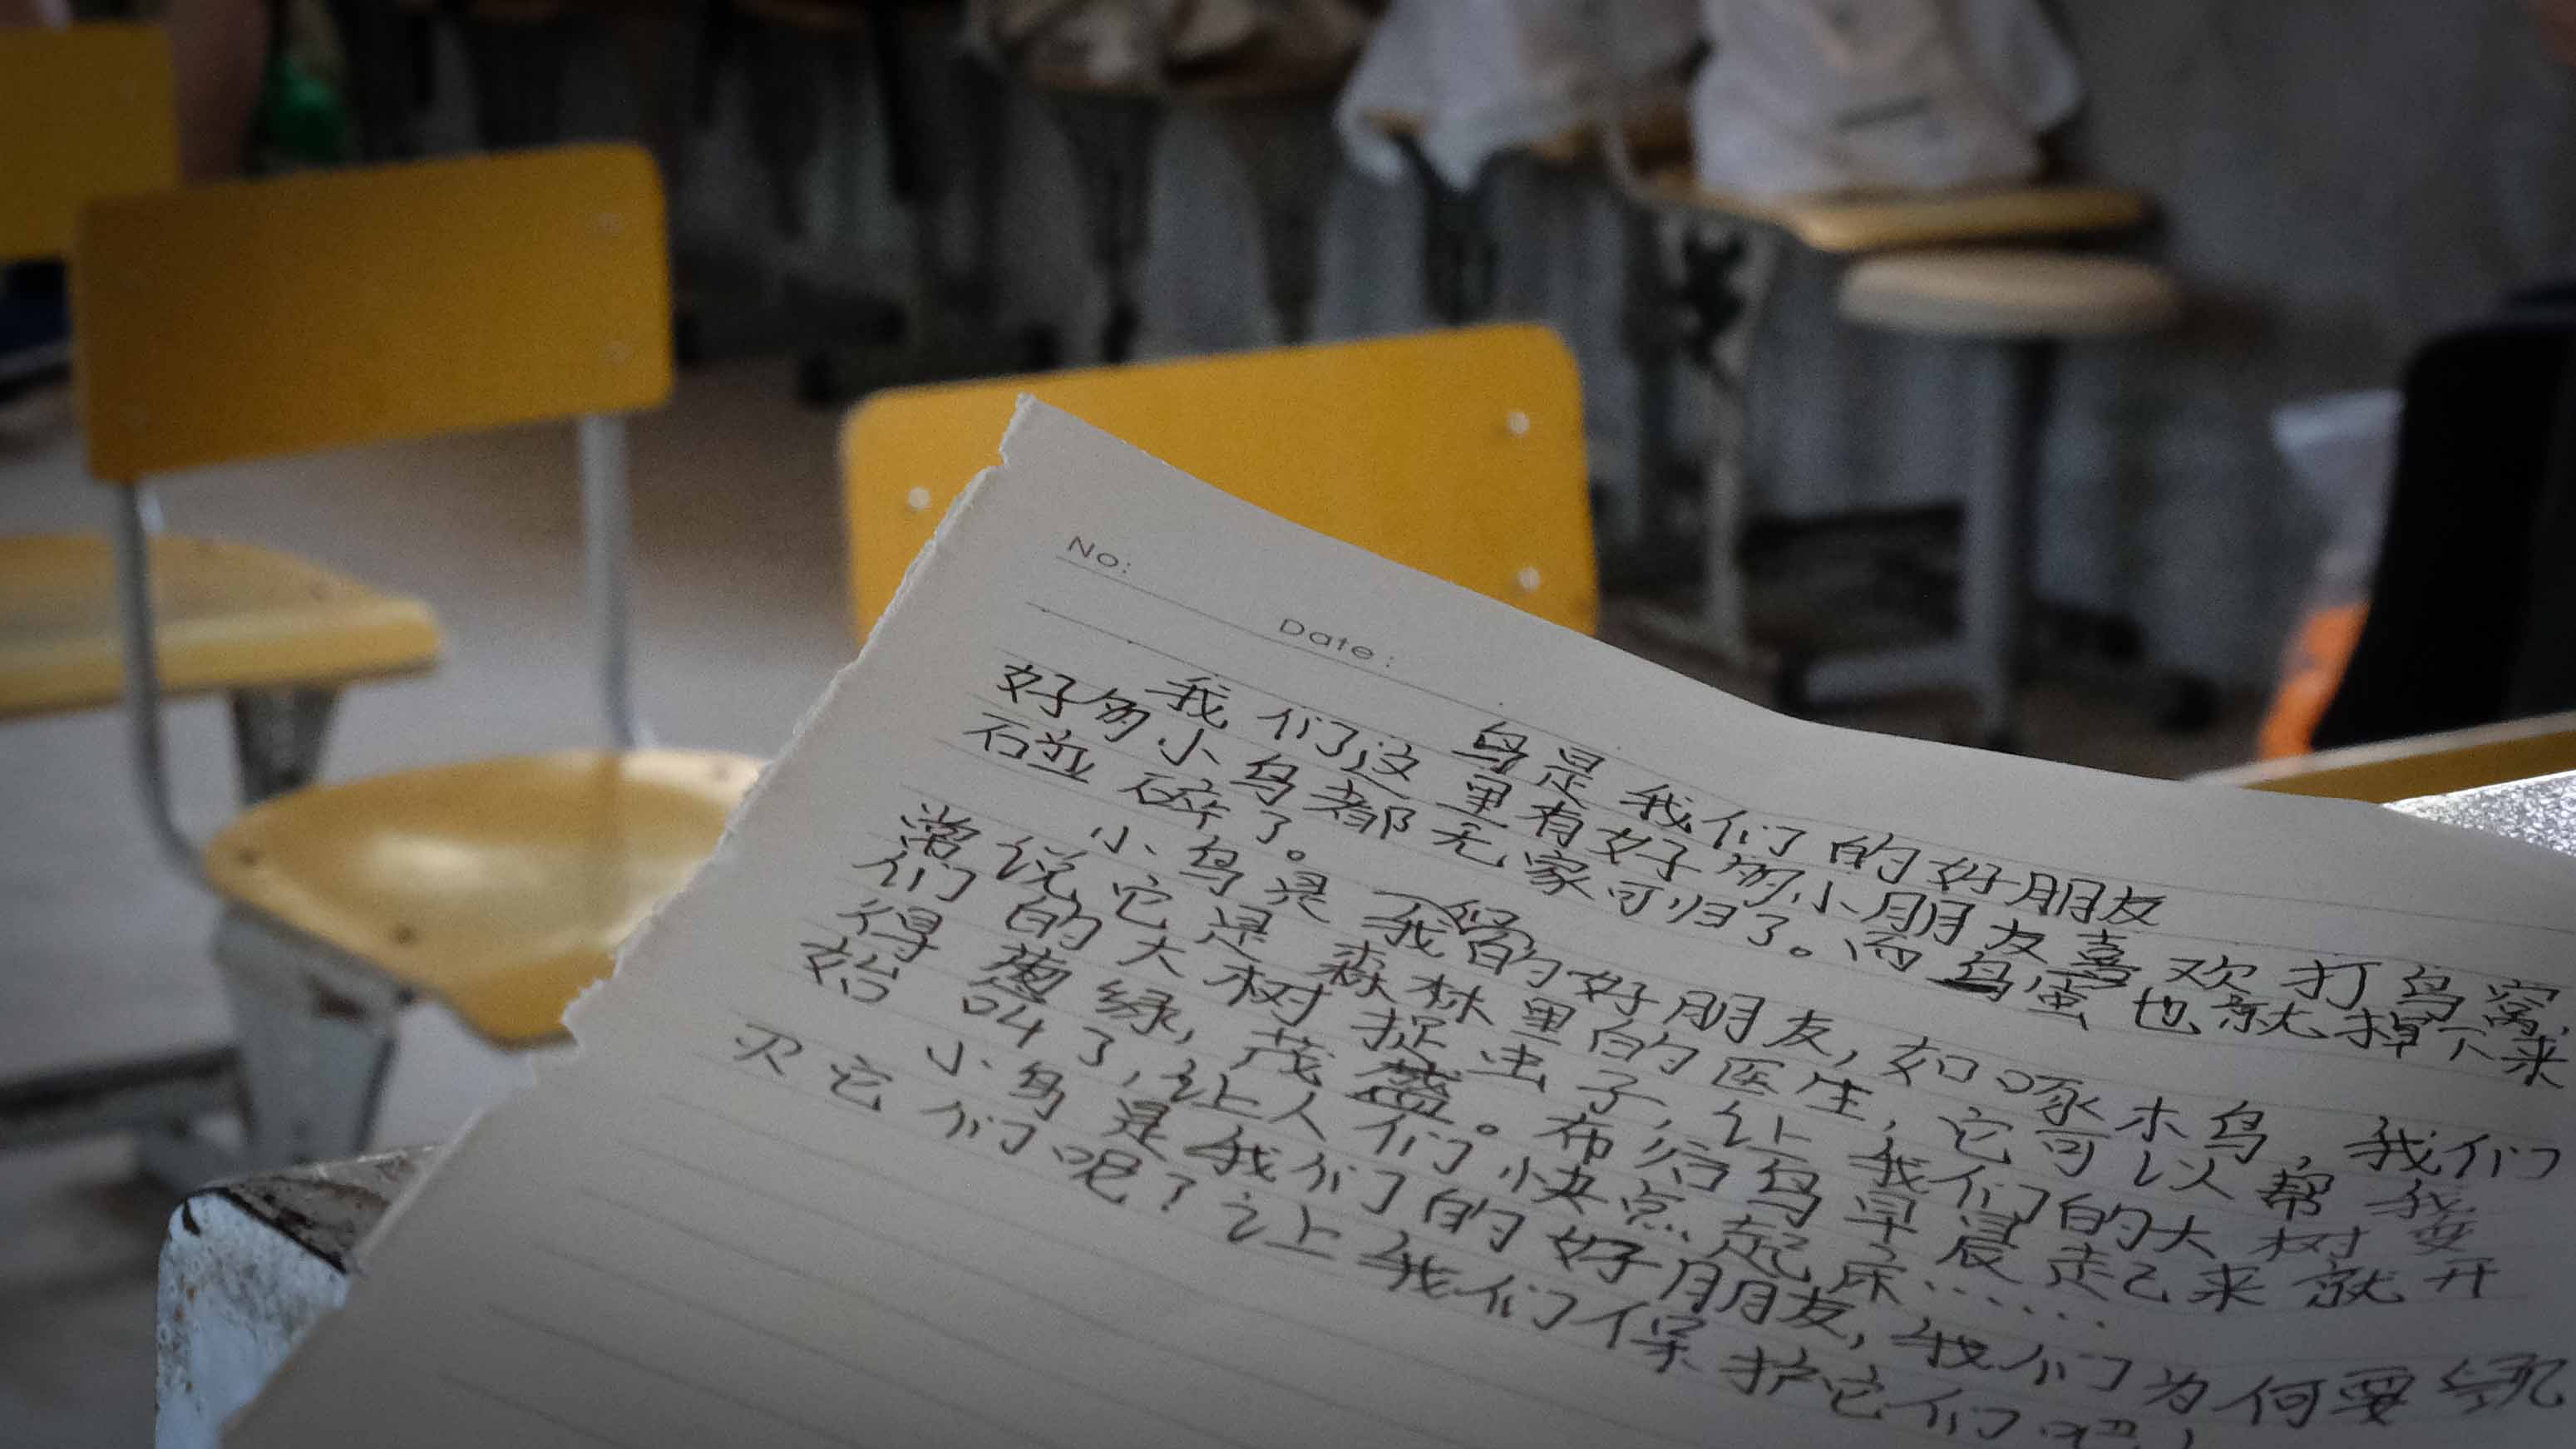 No:
Date:
鸟是我们的好朋友
我们这里有好多小朋友喜欢打鸟窝,
好多小鸟都无家可归了。而鸟蛋也就掉下来
碎了。
小鸟是我的好朋友,如啄木鸟,我们
常说它是森林里的医生,它可以帮我
们的大树捉虫子,让我们的大树变
得葱绿,茂盛。布谷鸟早晨起来就开
始叫了,让人们快点起床……
小鸟是我们的好朋友,我们为何要
灭它们呢?让我们保护它们吧!